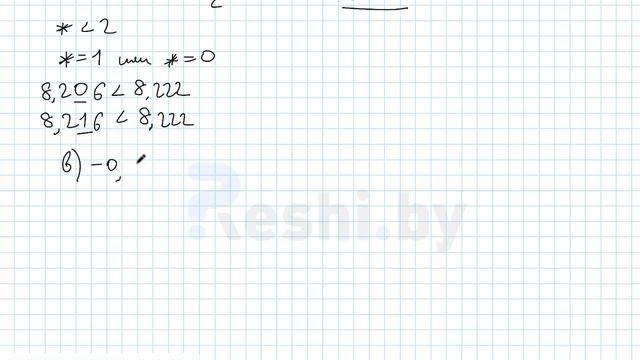 2
* < 2
* = 1 или * = 0
8,206 < 8,222
8,216 < 8,222
в) -0,
Reshi.by